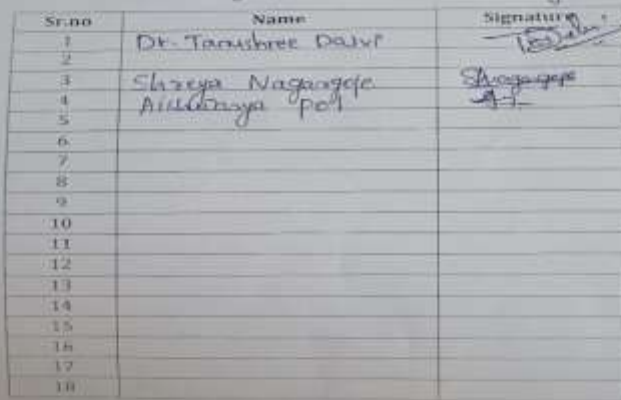 Sr.no Name Signature
1 Dr. Tanushree Dalvi
2
3 Shreya Nagargoje SNagargoje
4 Aishwarya Pol
5
6
7
8
9
10
11
12
13
14
15
16
17
18